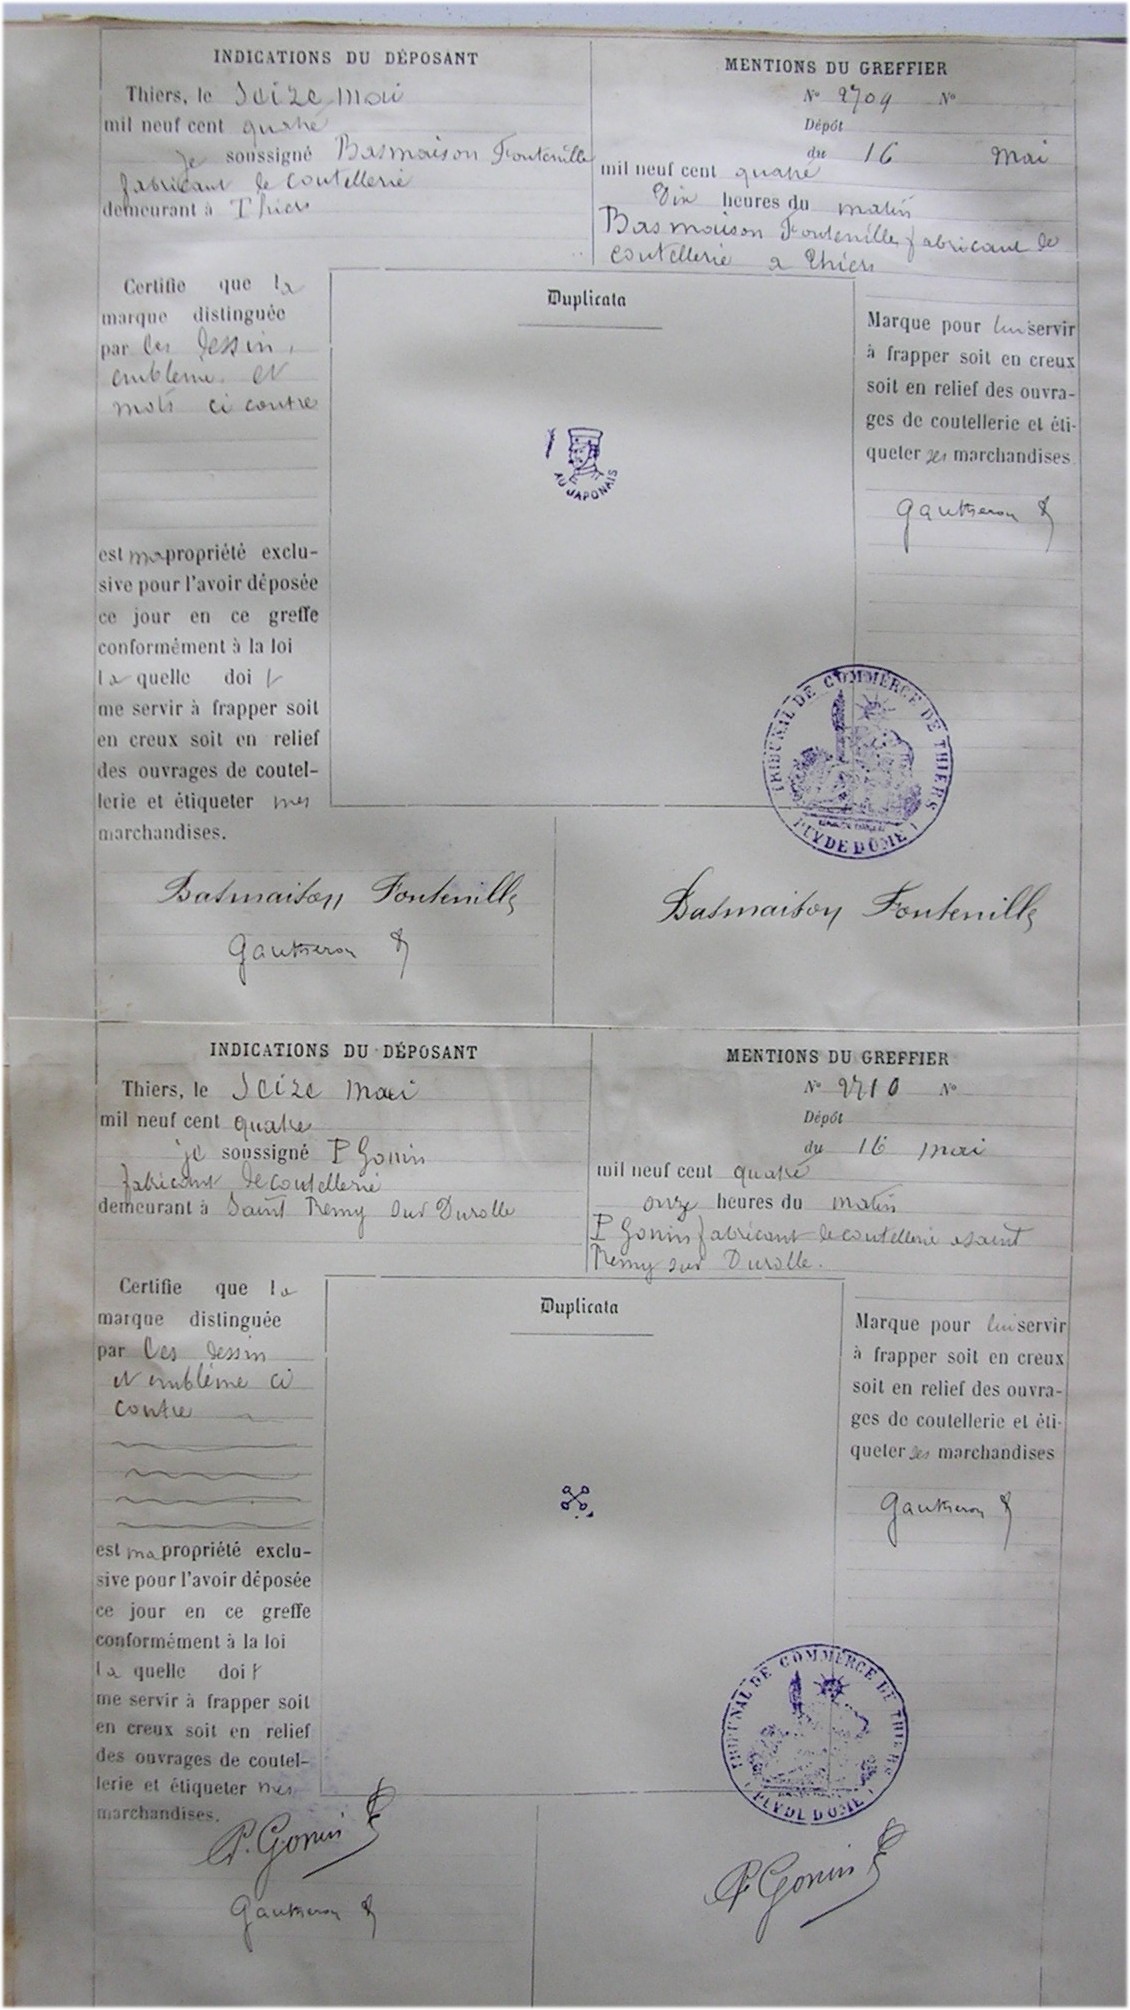 INDICATIONS DU DÉPOSANT
Thiers, le Seize Mai
mil neuf cent quatre
je soussigné Basmaison Fontenille
fabricant de coutellerie
demeurant à Thiers
MENTIONS DU GREFFIER
N° 2709 N°
Dépôt
du 16 Mai
mil neuf cent quatre
Dix heures du matin
Basmaison Fontenille fabricant de
coutellerie a Thiers
Certifie que la
marque distinguée
par les dessin,
emblème et
mots ci contre
est ma propriété exclu-
sive pour l'avoir déposée
ce jour en ce greffe
conformément à la loi
la quelle doit
me servir à frapper soit
en creux soit en relief
des ouvrages de coutel-
lerie et étiqueter mes
marchandises.
Duplicata
AU JAPONAIS
Marque pour lui servir
à frapper soit en creux
soit en relief des ouvra-
ges de coutellerie et éti-
queter ses marchandises
Gautheron
TRIBUNAL DE COMMERCE DE THIERS
PUY DE DÔME
Basmaison Fontenille
Gautheron
Basmaison Fontenille
INDICATIONS DU DÉPOSANT
Thiers, le Seize Mai
mil neuf cent quatre
je soussigné P Gonin
fabricant de coutellerie
demeurant à Saint Remy sur Durolle
MENTIONS DU GREFFIER
N° 2710 N°
Dépôt
du 16 mai
mil neuf cent quatre
onze heures du matin
P Gonin fabricant de coutellerie a saint
Remy sur Durolle.
Certifie que la
marque distinguée
par les dessin
et emblème ci
contre
est ma propriété exclu-
sive pour l'avoir déposée
ce jour en ce greffe
conformément à la loi
la quelle doit
me servir à frapper soit
en creux soit en relief
des ouvrages de coutel-
lerie et étiqueter mes
marchandises.
Duplicata
Marque pour lui servir
à frapper soit en creux
soit en relief des ouvra-
ges de coutellerie et éti-
queter ses marchandises
Gautheron
TRIBUNAL DE COMMERCE DE THIERS
PUY DE DOME
P. Gonin
Gautheron
P Gonin